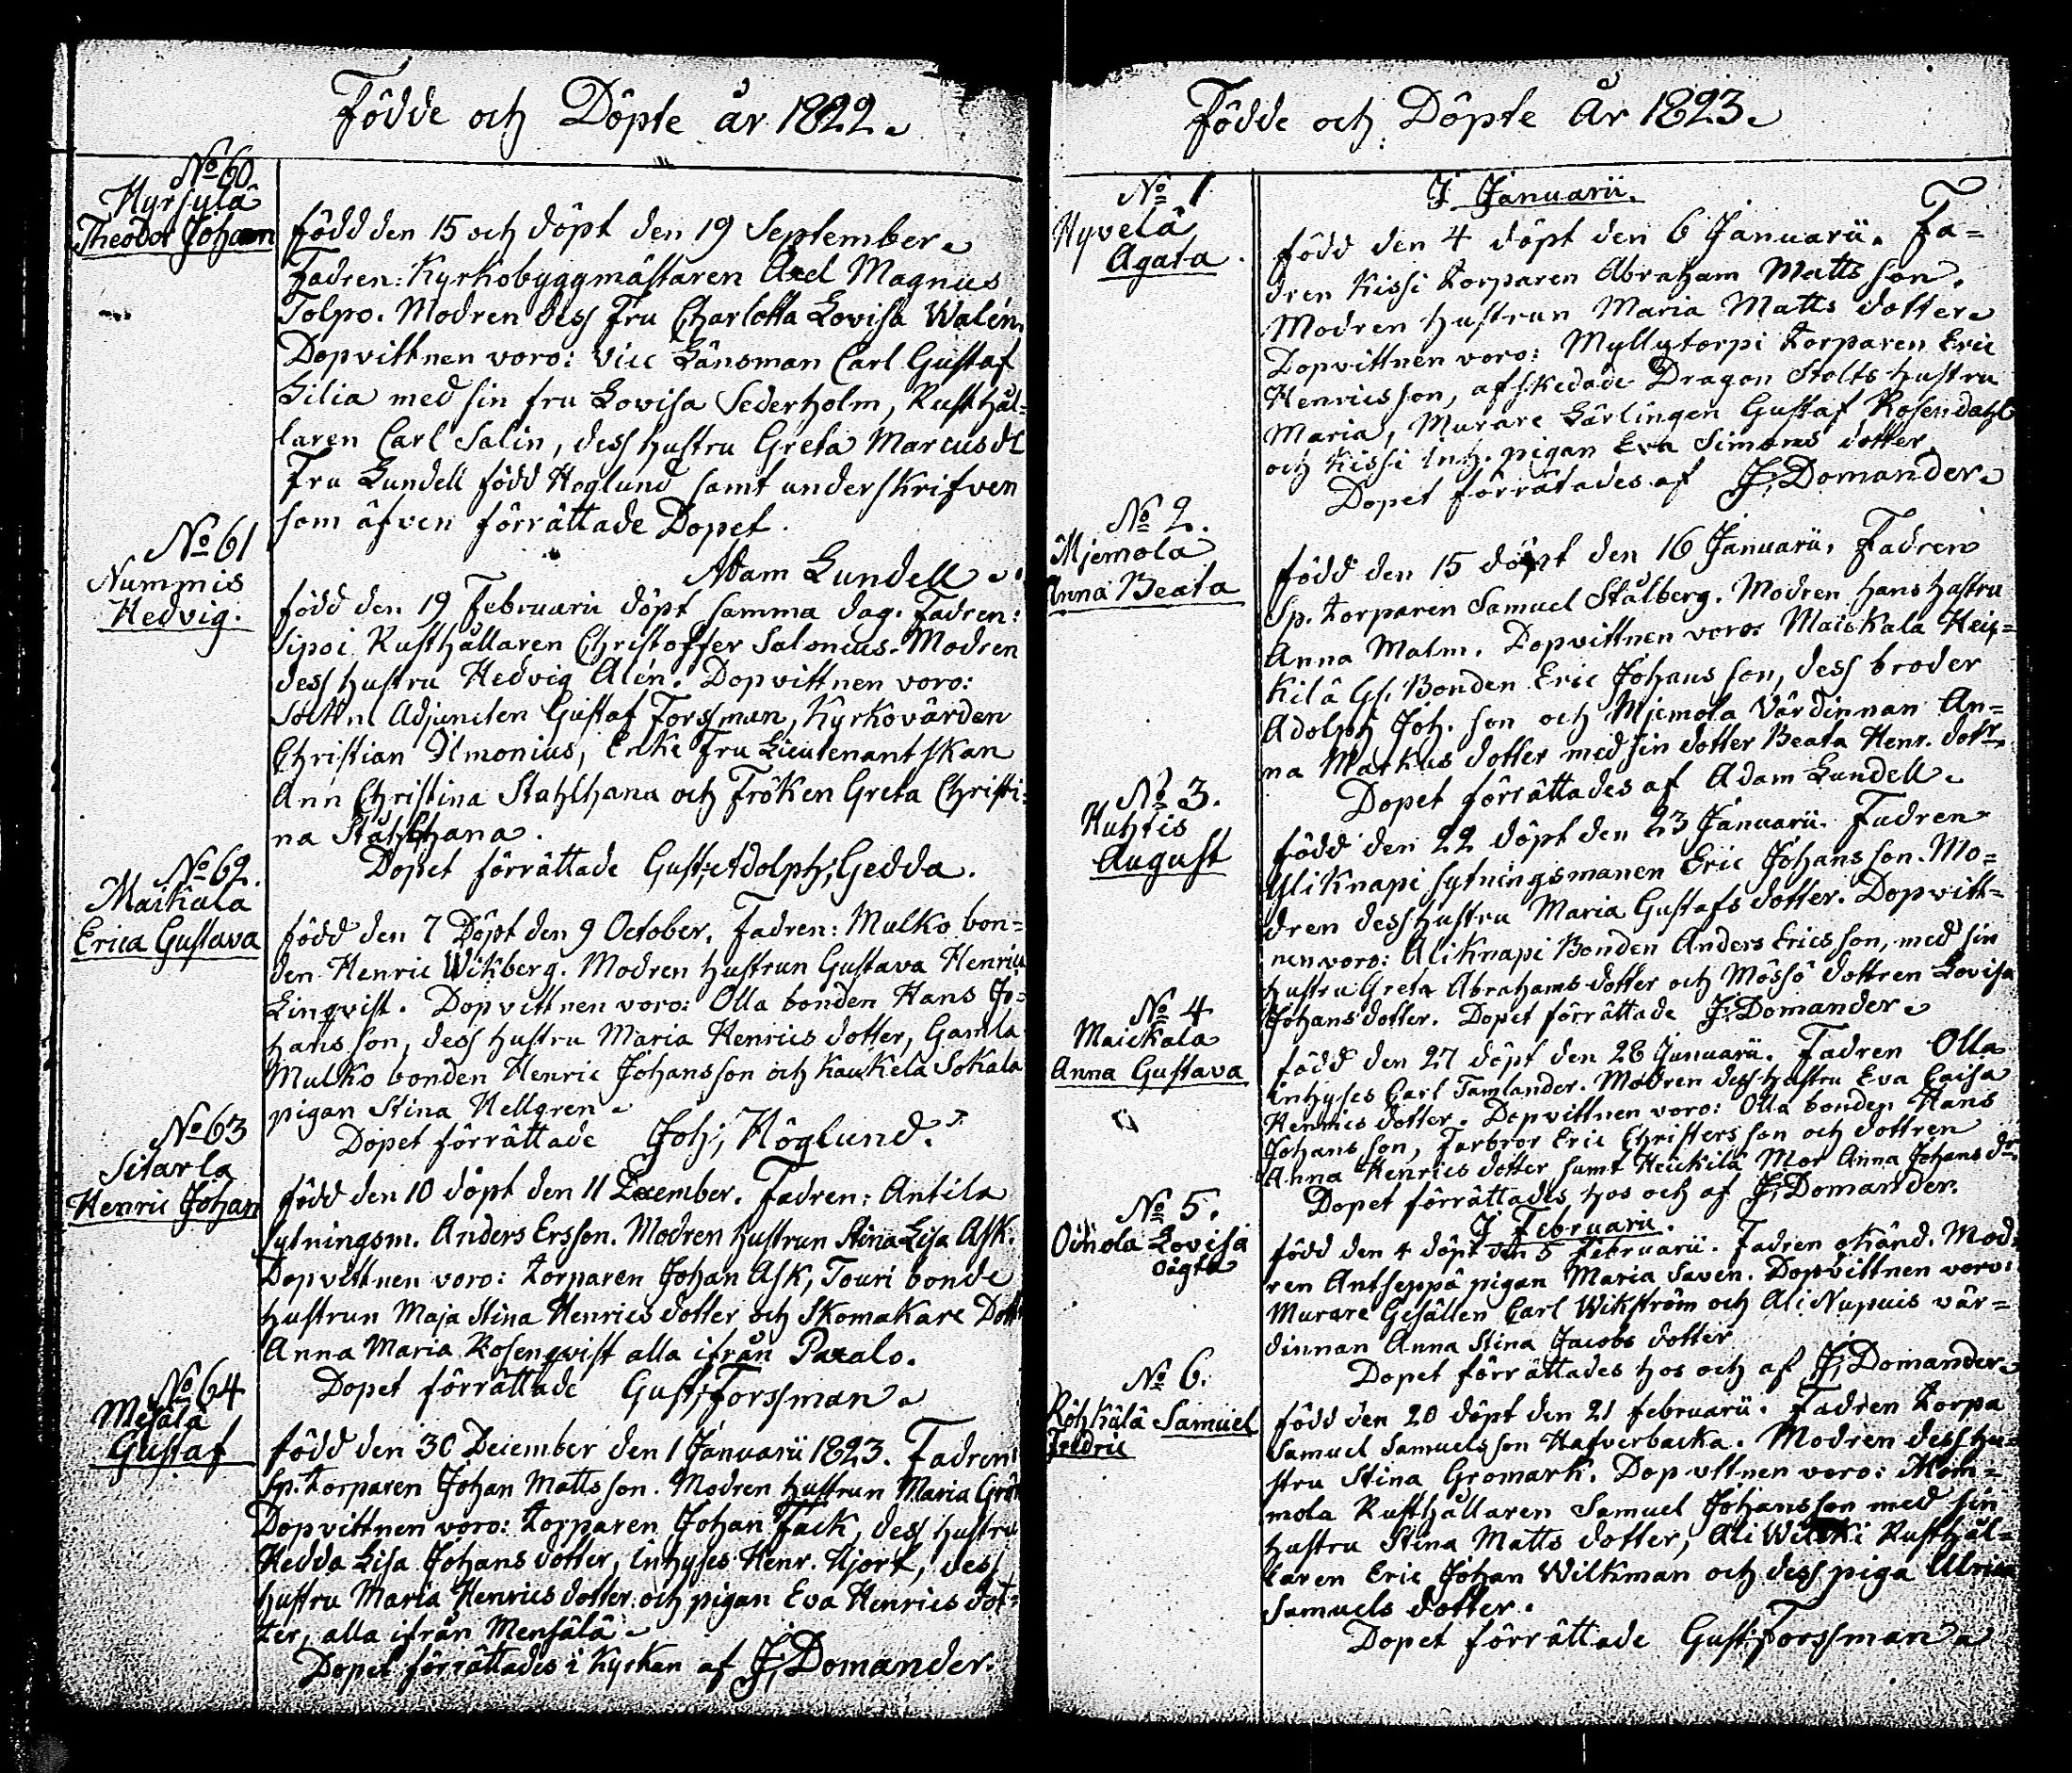 Födde och Döpte år 1822.
No 60
Hyrsylä
Theodor Johan
född den 15 och döpt den 19 September.
Fadren: Kyrkobyggmästaren Axel Magnus
Tolpo. Modren dess Fru Charlotta Lovisa Walén.
Dopvittnen voro: Vice Länsman Carl Gustaf
Gilia med sin fru Lovisa Sederholm, Rusthål-
laren Carl Salin, dess hustru Greta Marcus dt
Fru Lundell född Hoglund samt underskrifven
som äfven förrättade Dopet.
Adam Lundell.
No 61
Nummis
Hedvig.
född den 19 Februarii döpt samma dag. Fadren:
Sipoi Rusthållaren Christoffer Salonius. Modren
dess hustru Hedvig Alén. Dopvittnen voro:
Sockn. Adjuncten Gustaf Forssman, Kyrkovärden
Christian Ilmonius, Enke Fru Lieutenantskan
Ann Christina Stahlhana och Fröken Greta Christi-
na Stahlhana.
Dopet förrättade Gust; Adolph; Gedda.
No 62.
Maikala
Erica Gustava
född den 7 Döpt den 9 October. Fadren: Mulko bon-
den Henric Wikberg. Modren hustrun Gustava Henric
Linqvist. Dopvittnen voro: Olla bonden Hans Jo-
hansson, dess hustru Maria Henrics dotter, Gamla
Mulko bonden Henric Johansson och Kaukela Sokala
pigan Stina Hellgren.
Dopet förrättade Joh; Höglund.
No 63
Sitarla
Henric Johan
född den 10 döpt den 11 December. Fadren: Antila
Sytningsm. Anders Ersson. Modren hustrun Stina Lisa Ask.
Dopvittnen voro: torparen Johan Ask, Touri bonde
hustrun Maja Stina Henrics dotter och Skomakare Dott
Anna Maria Rosenqvist alla ifrån Paxalo.
Dopet förrättade Gust; Forssman.
No 64
Mesälä
Gustaf
född den 30 December den 1 Januarii 1823. Fadren:
Sp. torparen Johan Matts son. Modren hustrun Maria Grön
Dopvittnen voro: torparen Johan Fack, dess hustru
Hedda Lisa Johans dotter, inhyses Henr. Hjort, dess
hustru Maria Henrics dotter och pigan Eva Henrics dot-
ter, alla ifrån Mensälä.
Dopet förrättades i Kyrkan af J; Domander.
Födde och Döpte År 1823.
I Januarii.
No 1
Hyvelä
Agata.
född den 4 döpt den 6 Januarii. Fa-
dren Kissi torparen Abraham Matts son.
Modren hustrun Maria Matts dotter.
Dopvittnen voro: Myllytorpi torparen Eric
Henrics son, afskedade Dragon Stolts hustru
Maria, Murare Lärlingen Gustaf Rosendahl
och Kissi inh. pigan Eva Simons dotter.
Dopet förrätades af J; Domander.
No 2.
Mjemola
Anna Beata
född den 15 döpt den 16 Januarii. Fadren
Sp. torparen Samuel Stålberg. Modren hans hustru
Anna Malm. Dopvittnen voro: Maiskala Heik-
kilä Gl. Bonden Eric Johans son, dess broder
Adolph Joh. son och Mjemola Värdinnan An-
na Markus dotter med sin dotter Beata Henr. dottr.
Dopet förrättades af Adam Lundell.
No 3.
Huhtis
August
född den 22 döpt den 23 Januarii. Fadren
Yliknapi sytningsmanen Eric Johansson. Mo-
dren dess hustru Maria Gustafs dotter. Dopvitt-
nen voro: Aliknapi Bonden Anders Erics son, med sin
hustru Greta Abrahams dotter och Mössö dottren Lovisa
Johans dotter. Dopet förrättade J; Domander.
No 4
Maickala
Anna Gustava
född den 27 döpt den 28 Januarii. Fadren Olla
inhyses Carl Tamlander. Modren dess hustru Eva Caisa
Henrics dotter. Dopvittnen voro: Olla bonden Hans
Johans son, Farbror Eric Christers son och dottren
Anna Henrics dotter samt Heickilä Mor Anna Johans dr.
Dopet förrättades hos och af J; Domander.
I Februarii.
No 5.
Oinola Lovisa
oägta
född den 4 döpt den 5 Februarii. Fadren okänd. Mod-
ren Antseppä pigan Maria Saven. Dopvittnen voro:
Murare Gesällen Carl Wikström och Ali Nupuis vär-
dinnan Anna Stina Jacobs dotter
Dopet förrättades hos och af J; Domander.
No 6.
Köhkälä Samuel
Fredric
född den 20 döpt den 21 februarii. Fadren torpa
Samuel Samuels son Hafverbacka. Modren dess hu-
stru Stina Gromark. Dopvttnen voro: Mom-
mola Rusthållaren Samuel Johansson med sin
hustru Stina Matts dotter, Ali Witski Rusthål-
laren Eric Johan Wilkman och dess piga Ulrica
Samuels dotter.
Dopet förrättade Gust; Forssman